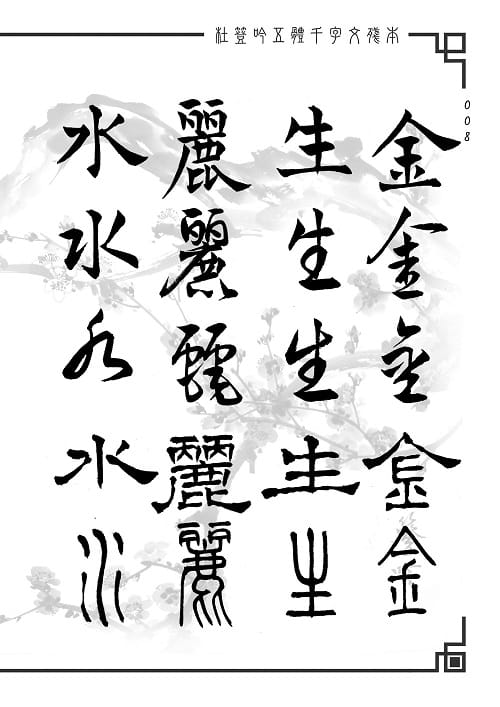 杜登吟五體千字文殘本
008
金金金金金
生生生生生
麗麗麗麗麗
水水水水水